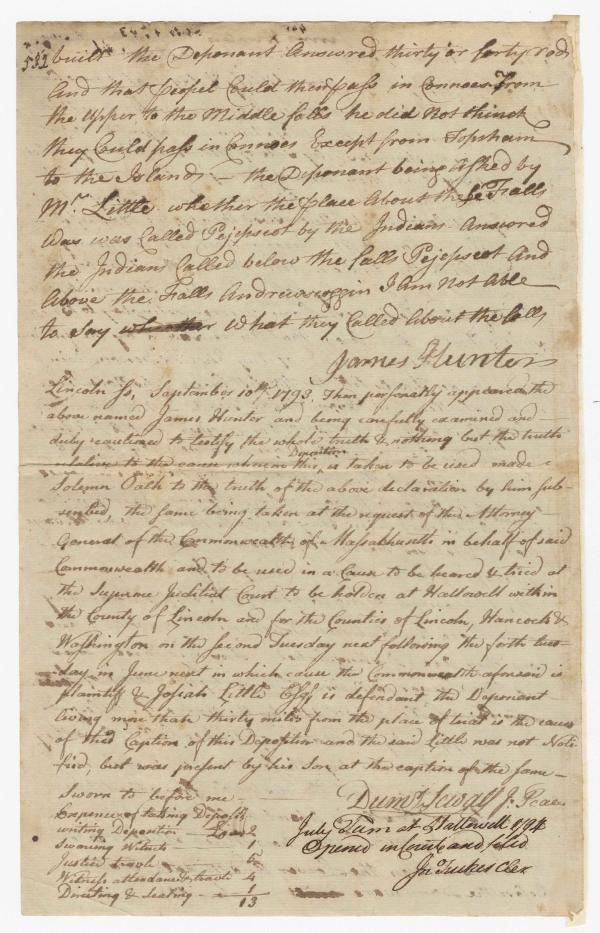 532 built the Deponant Answred thirty or forty rods
And that peopel Could then pass in Connoes from
the upper to the Middle falls he did Not think
they Could pass in Connoes Except from Topsham
to the Islands — the Deponant being Asked by
Mr. Little whether the place About these Falls
was was Called Pejepscot by the Indians Answored
the Indians Called below the falls Pejepscot And
Above the Falls Andrewscoggin I Am Not Able
to Say whather What they Called About the falls
James Hunter
Lincoln ss, September 10th, 1793, Then personally appeared the
above named James Hunter and being carefully examined and
duly cautioned to testify the whole truth & nothing but the truth
relative to the cause wherein this Deposition is taken to be used made
Solemn Oath to the truth of the above declaration by him sub-
scribed, the same being taken at the request of the Attorney
General of the Commonwealth of Massachusetts in behalf of said
Commonwealth and to be used in a Cause to be heared & tried at
the Supreme Juditial Court to be holden at Hallowell within
the County of Lincoln and for the Counties of Lincoln, Hancock &
Washington on the second Tuesday next following the forth tues-
day in June next in which cause the Commonwealth aforesaid is
plaintiff & Josiah Little Esqr is defendant the Deponant
living more than thirty miles from the place of trial is the cause
of this Caption of this Deposition and the said Little was not Noti-
fied, but was present by his Son at the caption of the same —
Sworn to before me — Dumr. Sewall J. Peace
Expence of taking Deposn
writing Deposition — 2
Swaring Witness — 1
Justice travel — 5
Witness attendance & travil 4
Directing & sealing — 1
13
July Term at Hallowell 1794
Opened in Court and filed
Jno Tucker Cler